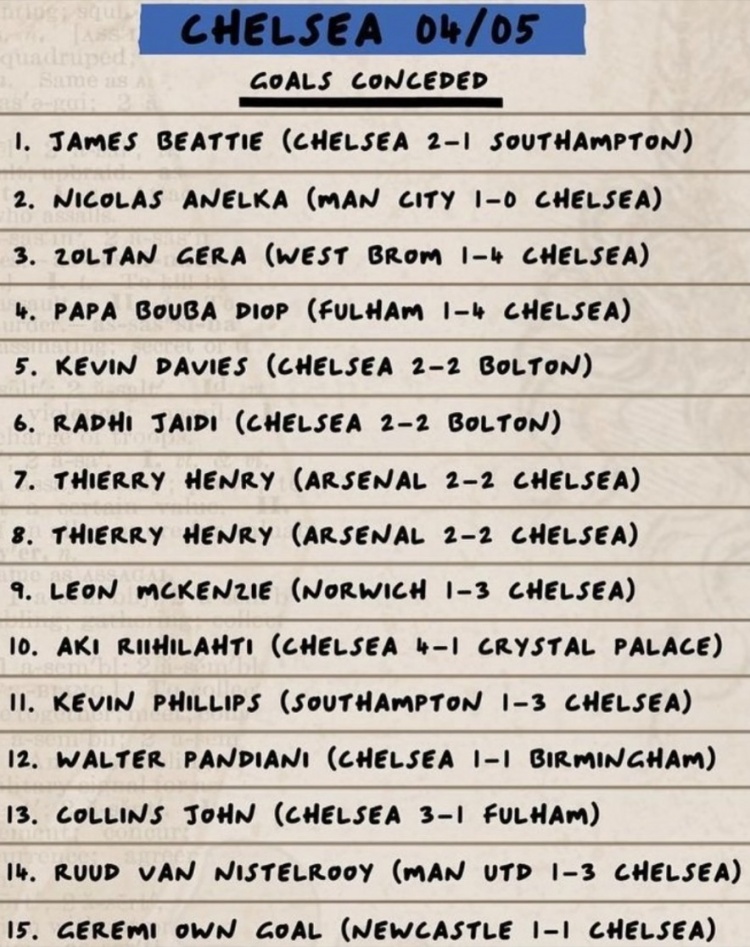 CHELSEA 04/05
GOALS CONCEDED
1. JAMES BEATTIE (CHELSEA 2-1 SOUTHAMPTON)
2. NICOLAS ANELKA (MAN CITY 1-0 CHELSEA)
3. ZOLTAN GERA (WEST BROM 1-4 CHELSEA)
4. PAPA BOUBA DIOP (FULHAM 1-4 CHELSEA)
5. KEVIN DAVIES (CHELSEA 2-2 BOLTON)
6. RADHI JAIDI (CHELSEA 2-2 BOLTON)
7. THIERRY HENRY (ARSENAL 2-2 CHELSEA)
8. THIERRY HENRY (ARSENAL 2-2 CHELSEA)
9. LEON MCKENZIE (NORWICH 1-3 CHELSEA)
10. AKI RIIHILAHTI (CHELSEA 4-1 CRYSTAL PALACE)
11. KEVIN PHILLIPS (SOUTHAMPTON 1-3 CHELSEA)
12. WALTER PANDIANI (CHELSEA 1-1 BIRMINGHAM)
13. COLLINS JOHN (CHELSEA 3-1 FULHAM)
14. RUUD VAN NISTELROOY (MAN UTD 1-3 CHELSEA)
15. GEREMI OWN GOAL (NEWCASTLE 1-1 CHELSEA)